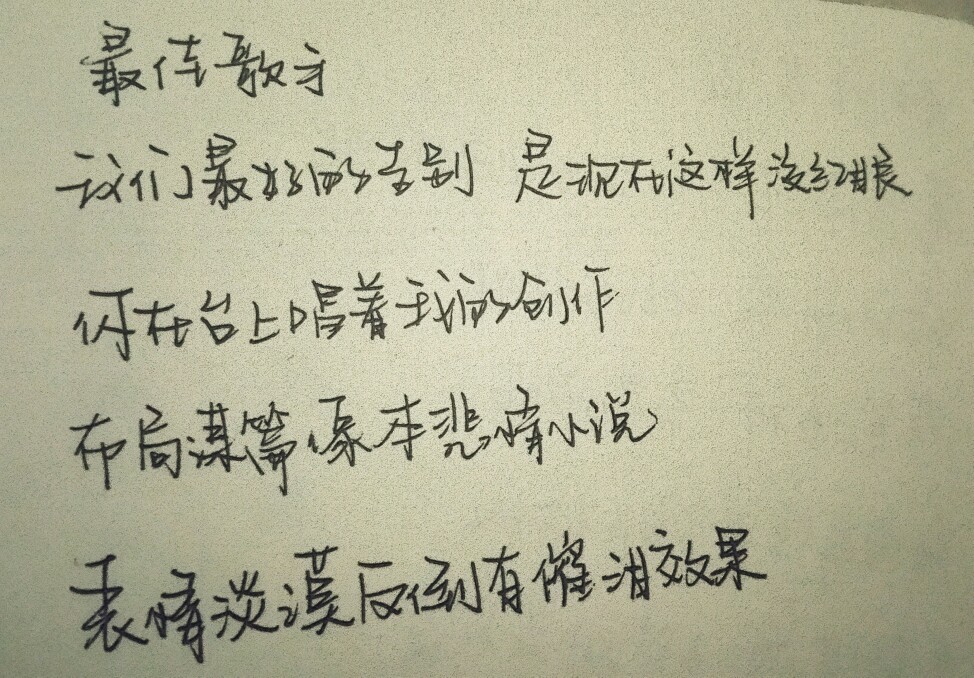 最佳歌手
我们最好的告别 是现在这样没红眼
你在台上唱着我的创作
布局谋篇像本悲情小说
表情淡漠反倒有催泪效果